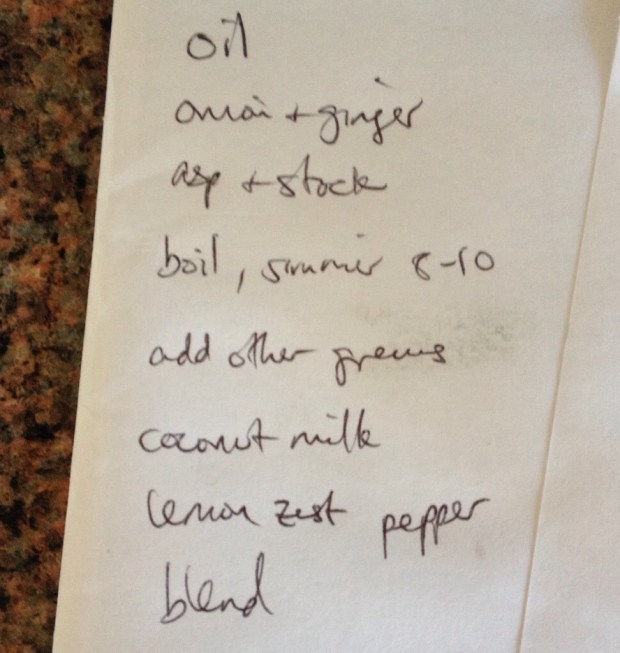 oil
onion + ginger
asp + stock
boil, simmer 8-10
add other greens
coconut milk
lemon zest pepper
blend